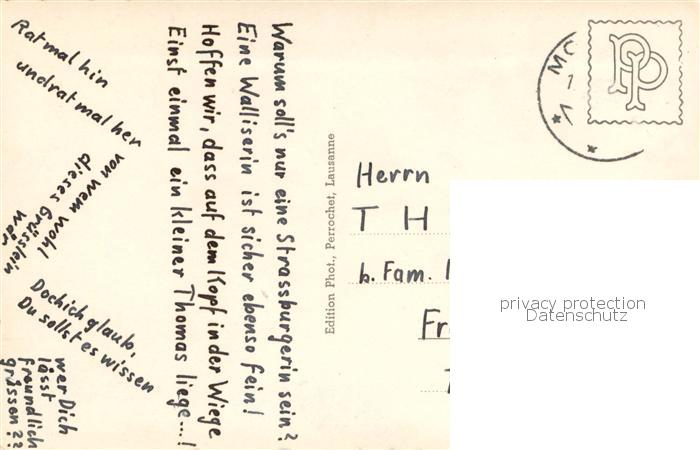 Warum soll's nur eine Strassburgerin sein?
Eine Walliserin ist sicher ebenso fein!
Hoffen wir, dass auf dem Kopf in der Wiege
Einst einmal ein kleiner Thomas liege...!
Rat mal hin
und rat mal her
von wem wohl
dieses Grüsslein
wär
Doch ich glaub,
Du sollst es wissen
wer Dich
lässt
freundlich
grüssen??
Edition Phot., Perrochet, Lausanne
PP
MO
1
Herrn
T H
b. Fam.
Fr
privacy protection
Datenschutz